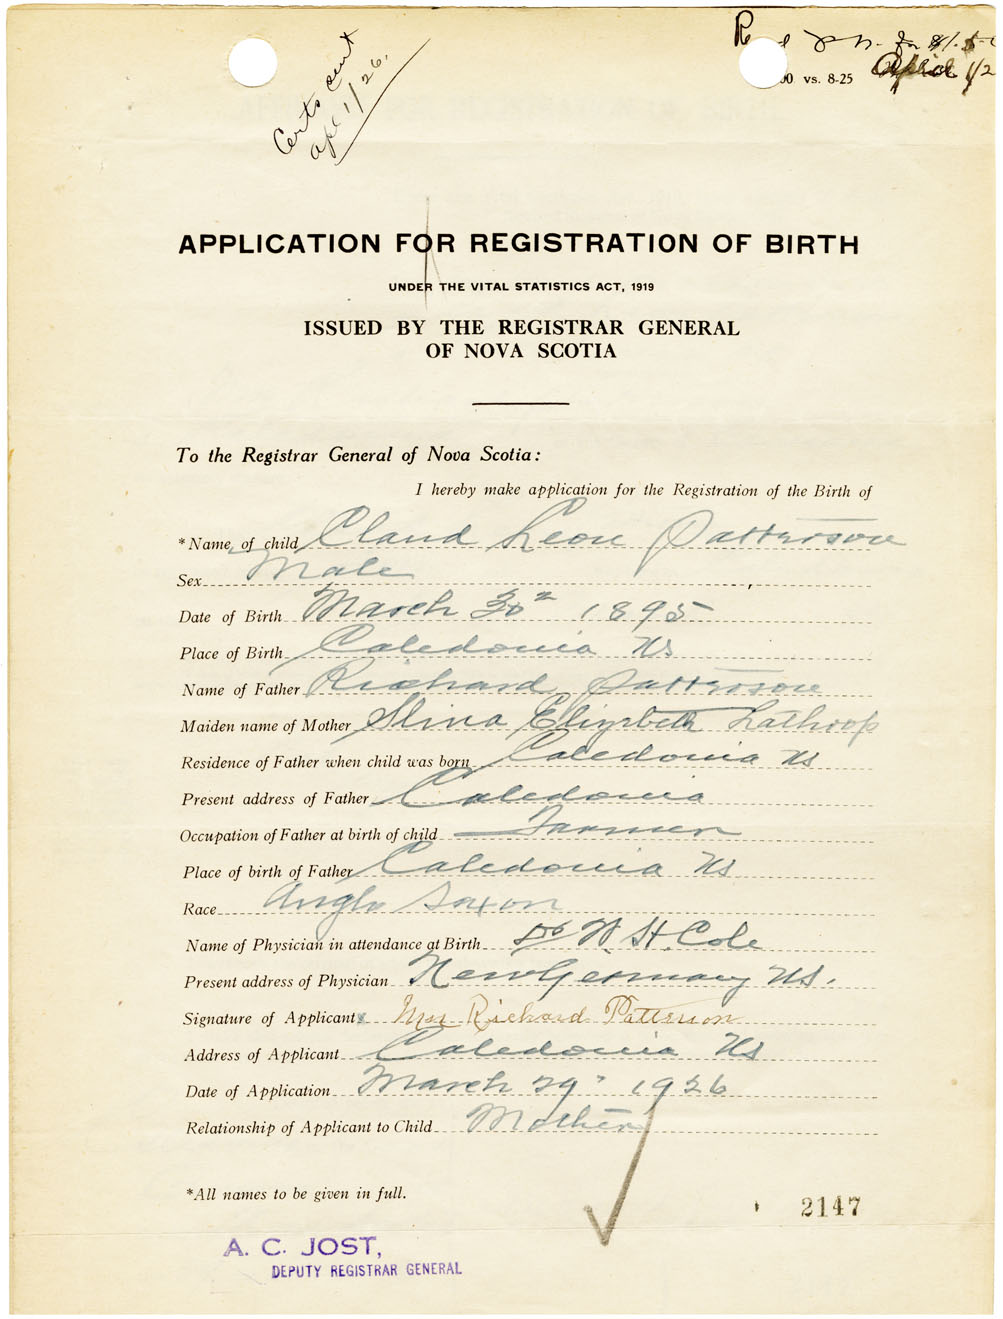 Certs sent
Apl 1/26.
vs. 8-25
APPLICATION FOR REGISTRATION OF BIRTH
UNDER THE VITAL STATISTICS ACT, 1919
ISSUED BY THE REGISTRAR GENERAL
OF NOVA SCOTIA
To the Registrar General of Nova Scotia:
I hereby make application for the Registration of the Birth of
*Name of child Claud Leon Patterson
Sex Male
Date of Birth March 30 1895
Place of Birth Caledonia NS
Name of Father Richard Patterson
Maiden name of Mother Elizabeth Lathrop
Residence of Father when child was born Caledonia NS
Present address of Father Caledonia
Occupation of Father at birth of child Farmer
Place of birth of Father Caledonia NS
Race Anglo Saxon
Name of Physician in attendance at Birth Dr W. H. Cole
Present address of Physician New Germany NS.
Signature of Applicant Mrs Richard Patterson
Address of Applicant Caledonia NS
Date of Application March 29 1926
Relationship of Applicant to Child Mother
*All names to be given in full.
2147
A. C. JOST,
DEPUTY REGISTRAR GENERAL